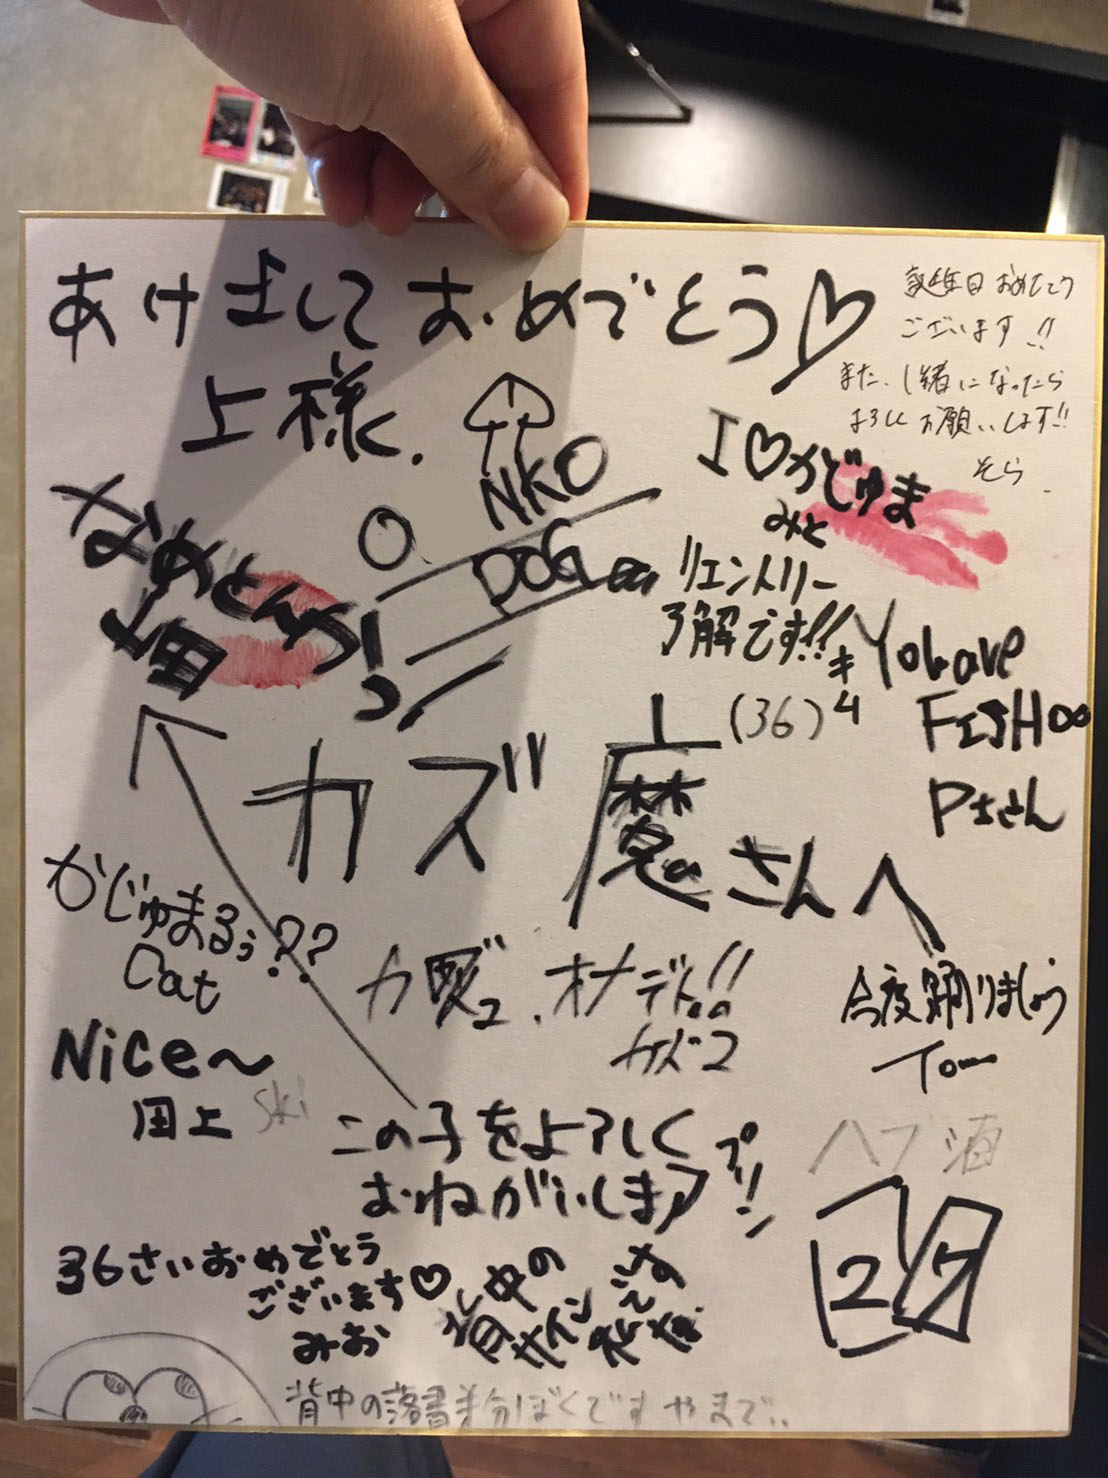 あけましておめでとう♡
上様.
誕生日おめでとう
ございます!!
また、一緒になったら
よろしくお願いします!!
そら
I♡かじゅま
みと
NKO
DOG
なめとんか
リエントリー
了解です!!
(36)
カズ魔さんへ
FISHoo
かじゅまるぅ??
Cat
オナ
今度踊りましょう
Tom
Nice〜
田上
ski
この子をよろしく
おねがいします
プリン
ハブ酒
27
36さいおめでとう
ございます♡
みお
背中の
サイン
背中の落書き半分ぼくです やまで..